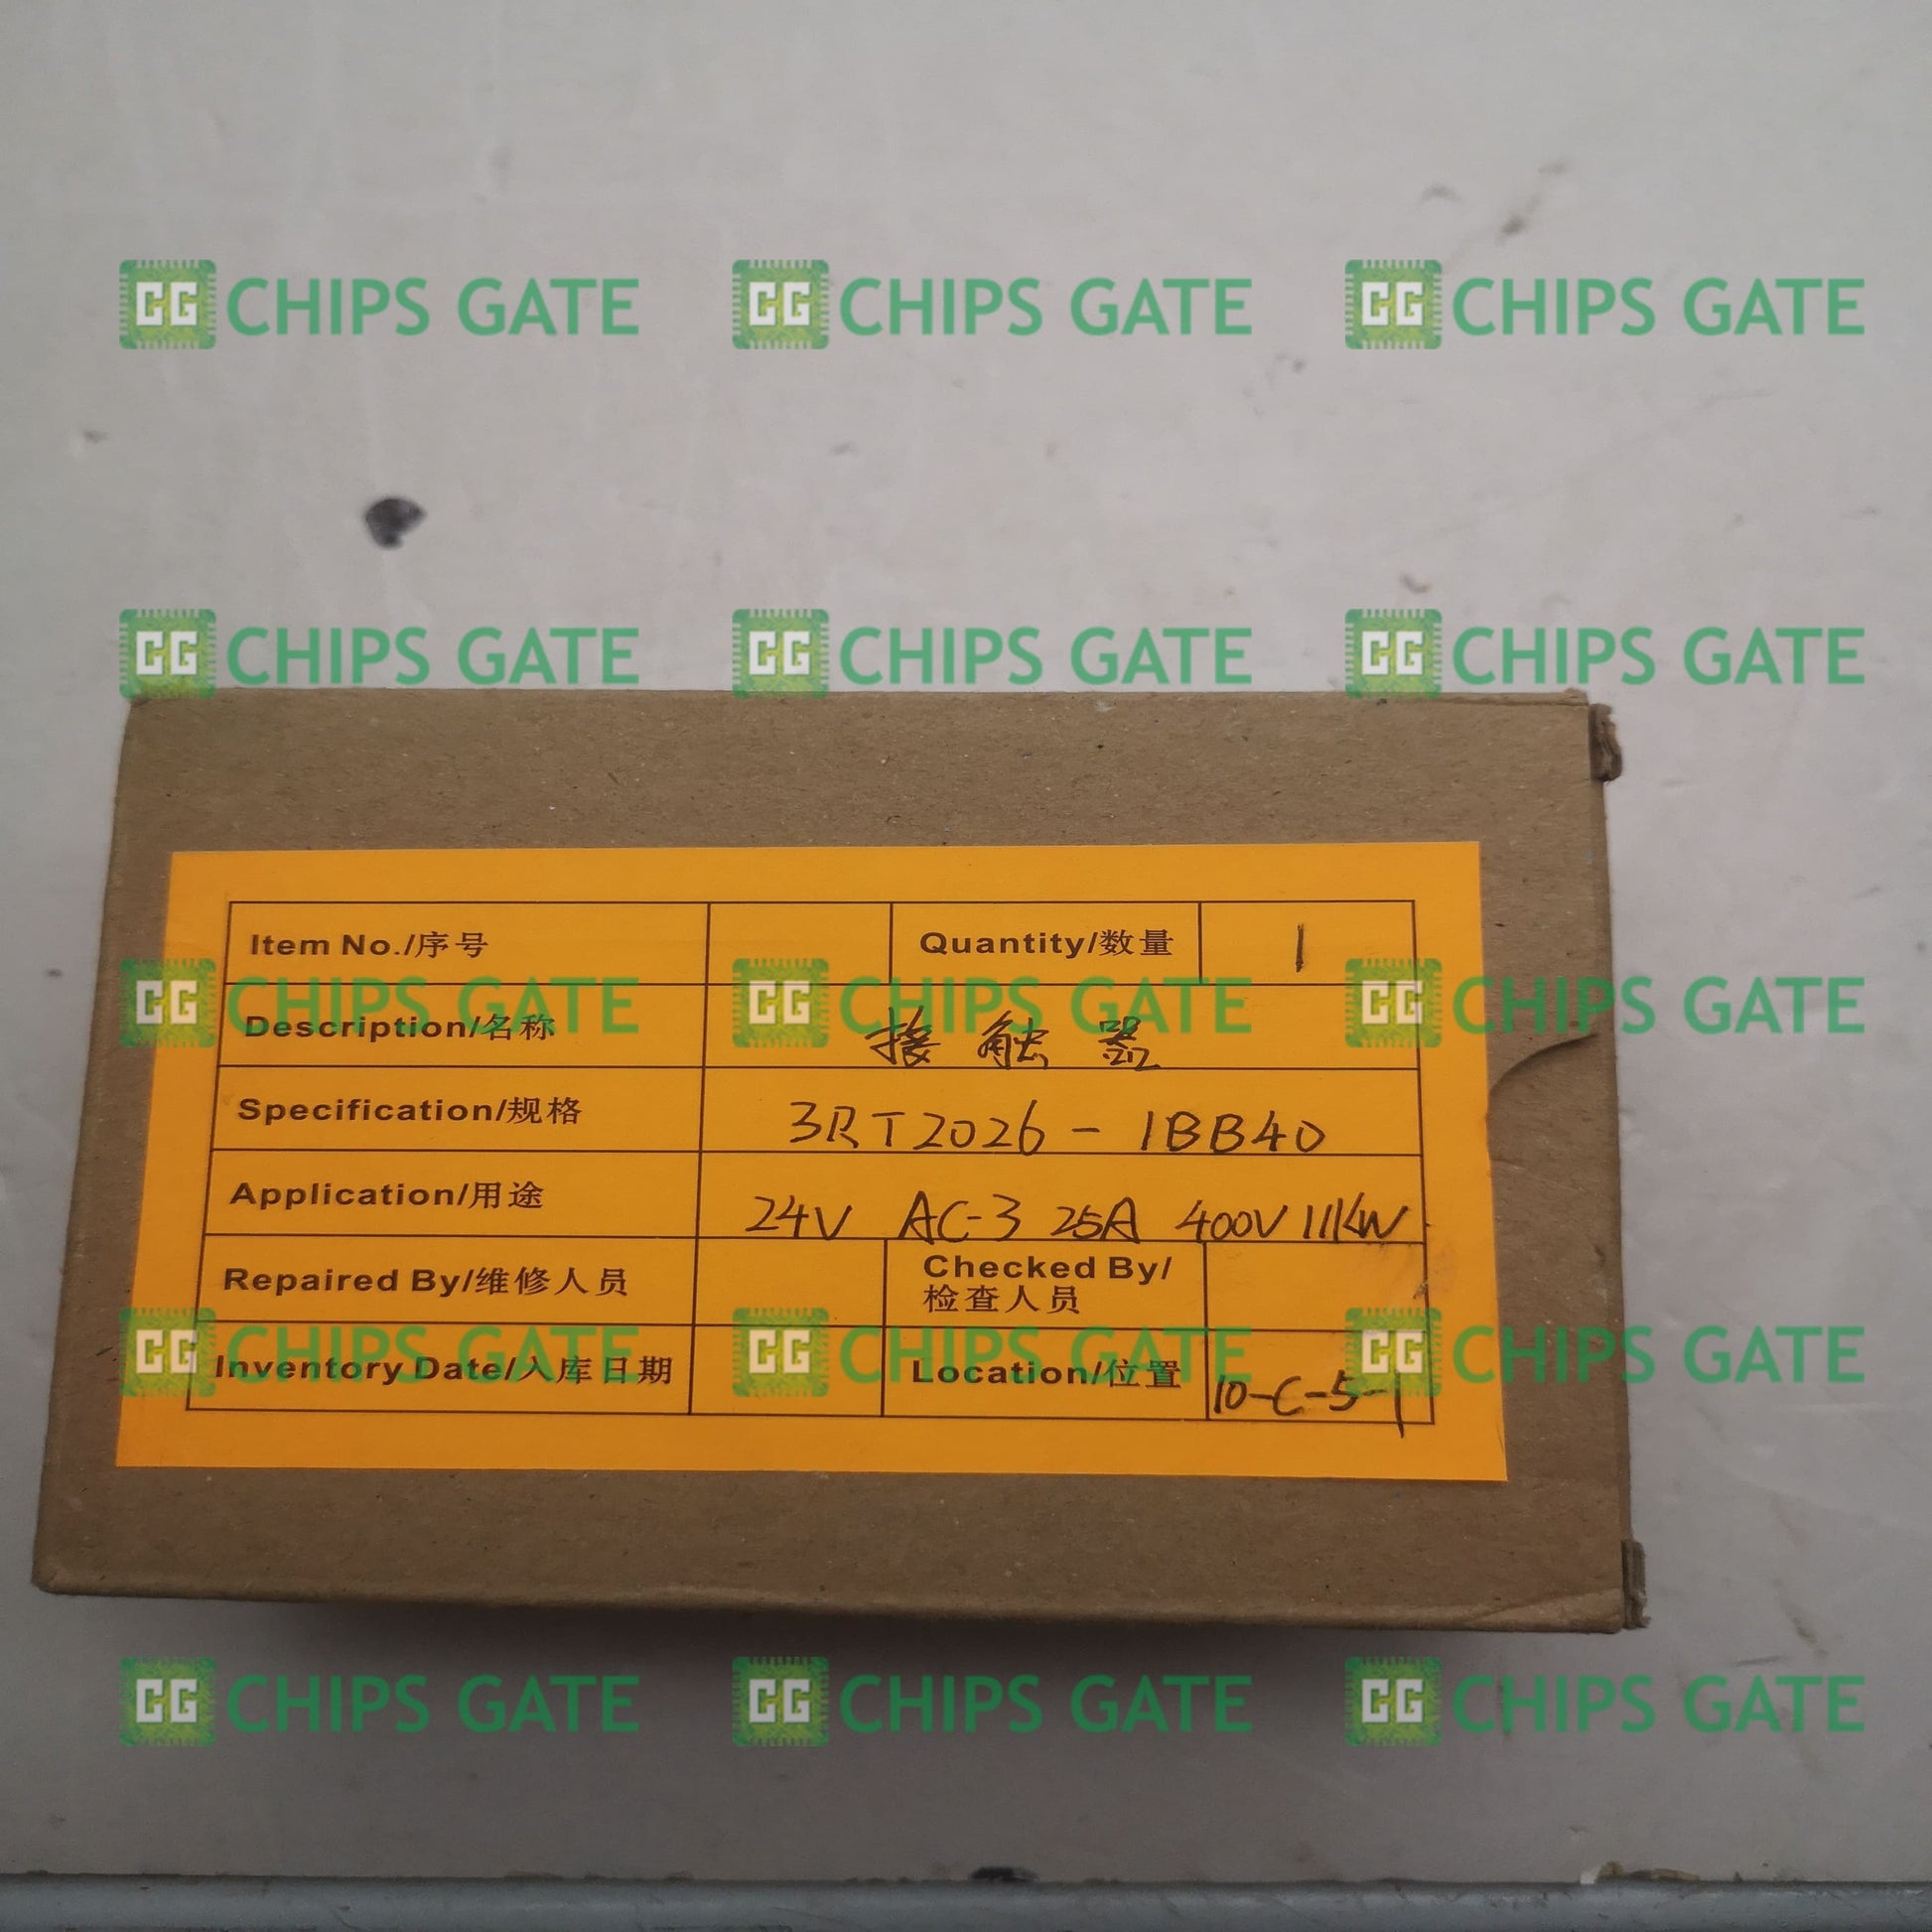 CG CHIPS GATE CG CHIPS GATE CG CHIPS GATE
CG CHIPS GATE CG CHIPS GATE CG CHIPS GATE
Item No./序号 Quantity/数量 1
CG CHIPS GATE CG CHIPS GATE CG CHIPS GATE
Description/名称 接触器
Specification/规格 3RT2026-1BB40
Application/用途 24V AC-3 25A 400V 11KW
Repaired By/维修人员 Checked By/
检查人员
CG CHIPS GATE CG CHIPS GATE CG CHIPS GATE
Inventory Date/入库日期 Location/位置 10-C-5-1
CG CHIPS GATE CG CHIPS GATE CG CHIPS GATE